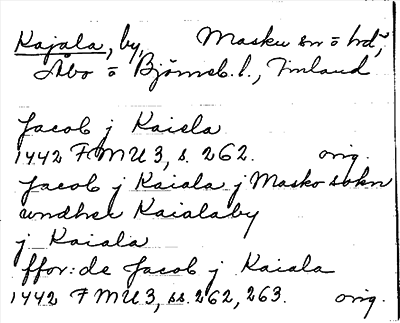 Kajala, by, Masku sn o hd,
Åbo o Björneb. l., Finland
Jacob j Kaiala
1442 FMU 3, s. 262. orig.
Jacob j Kaiala j Masko sokn
undher Kaialaby
j Kaiala
ffor:de Jacob j Kaiala
1442 FMU 3, ss. 262, 263. orig.